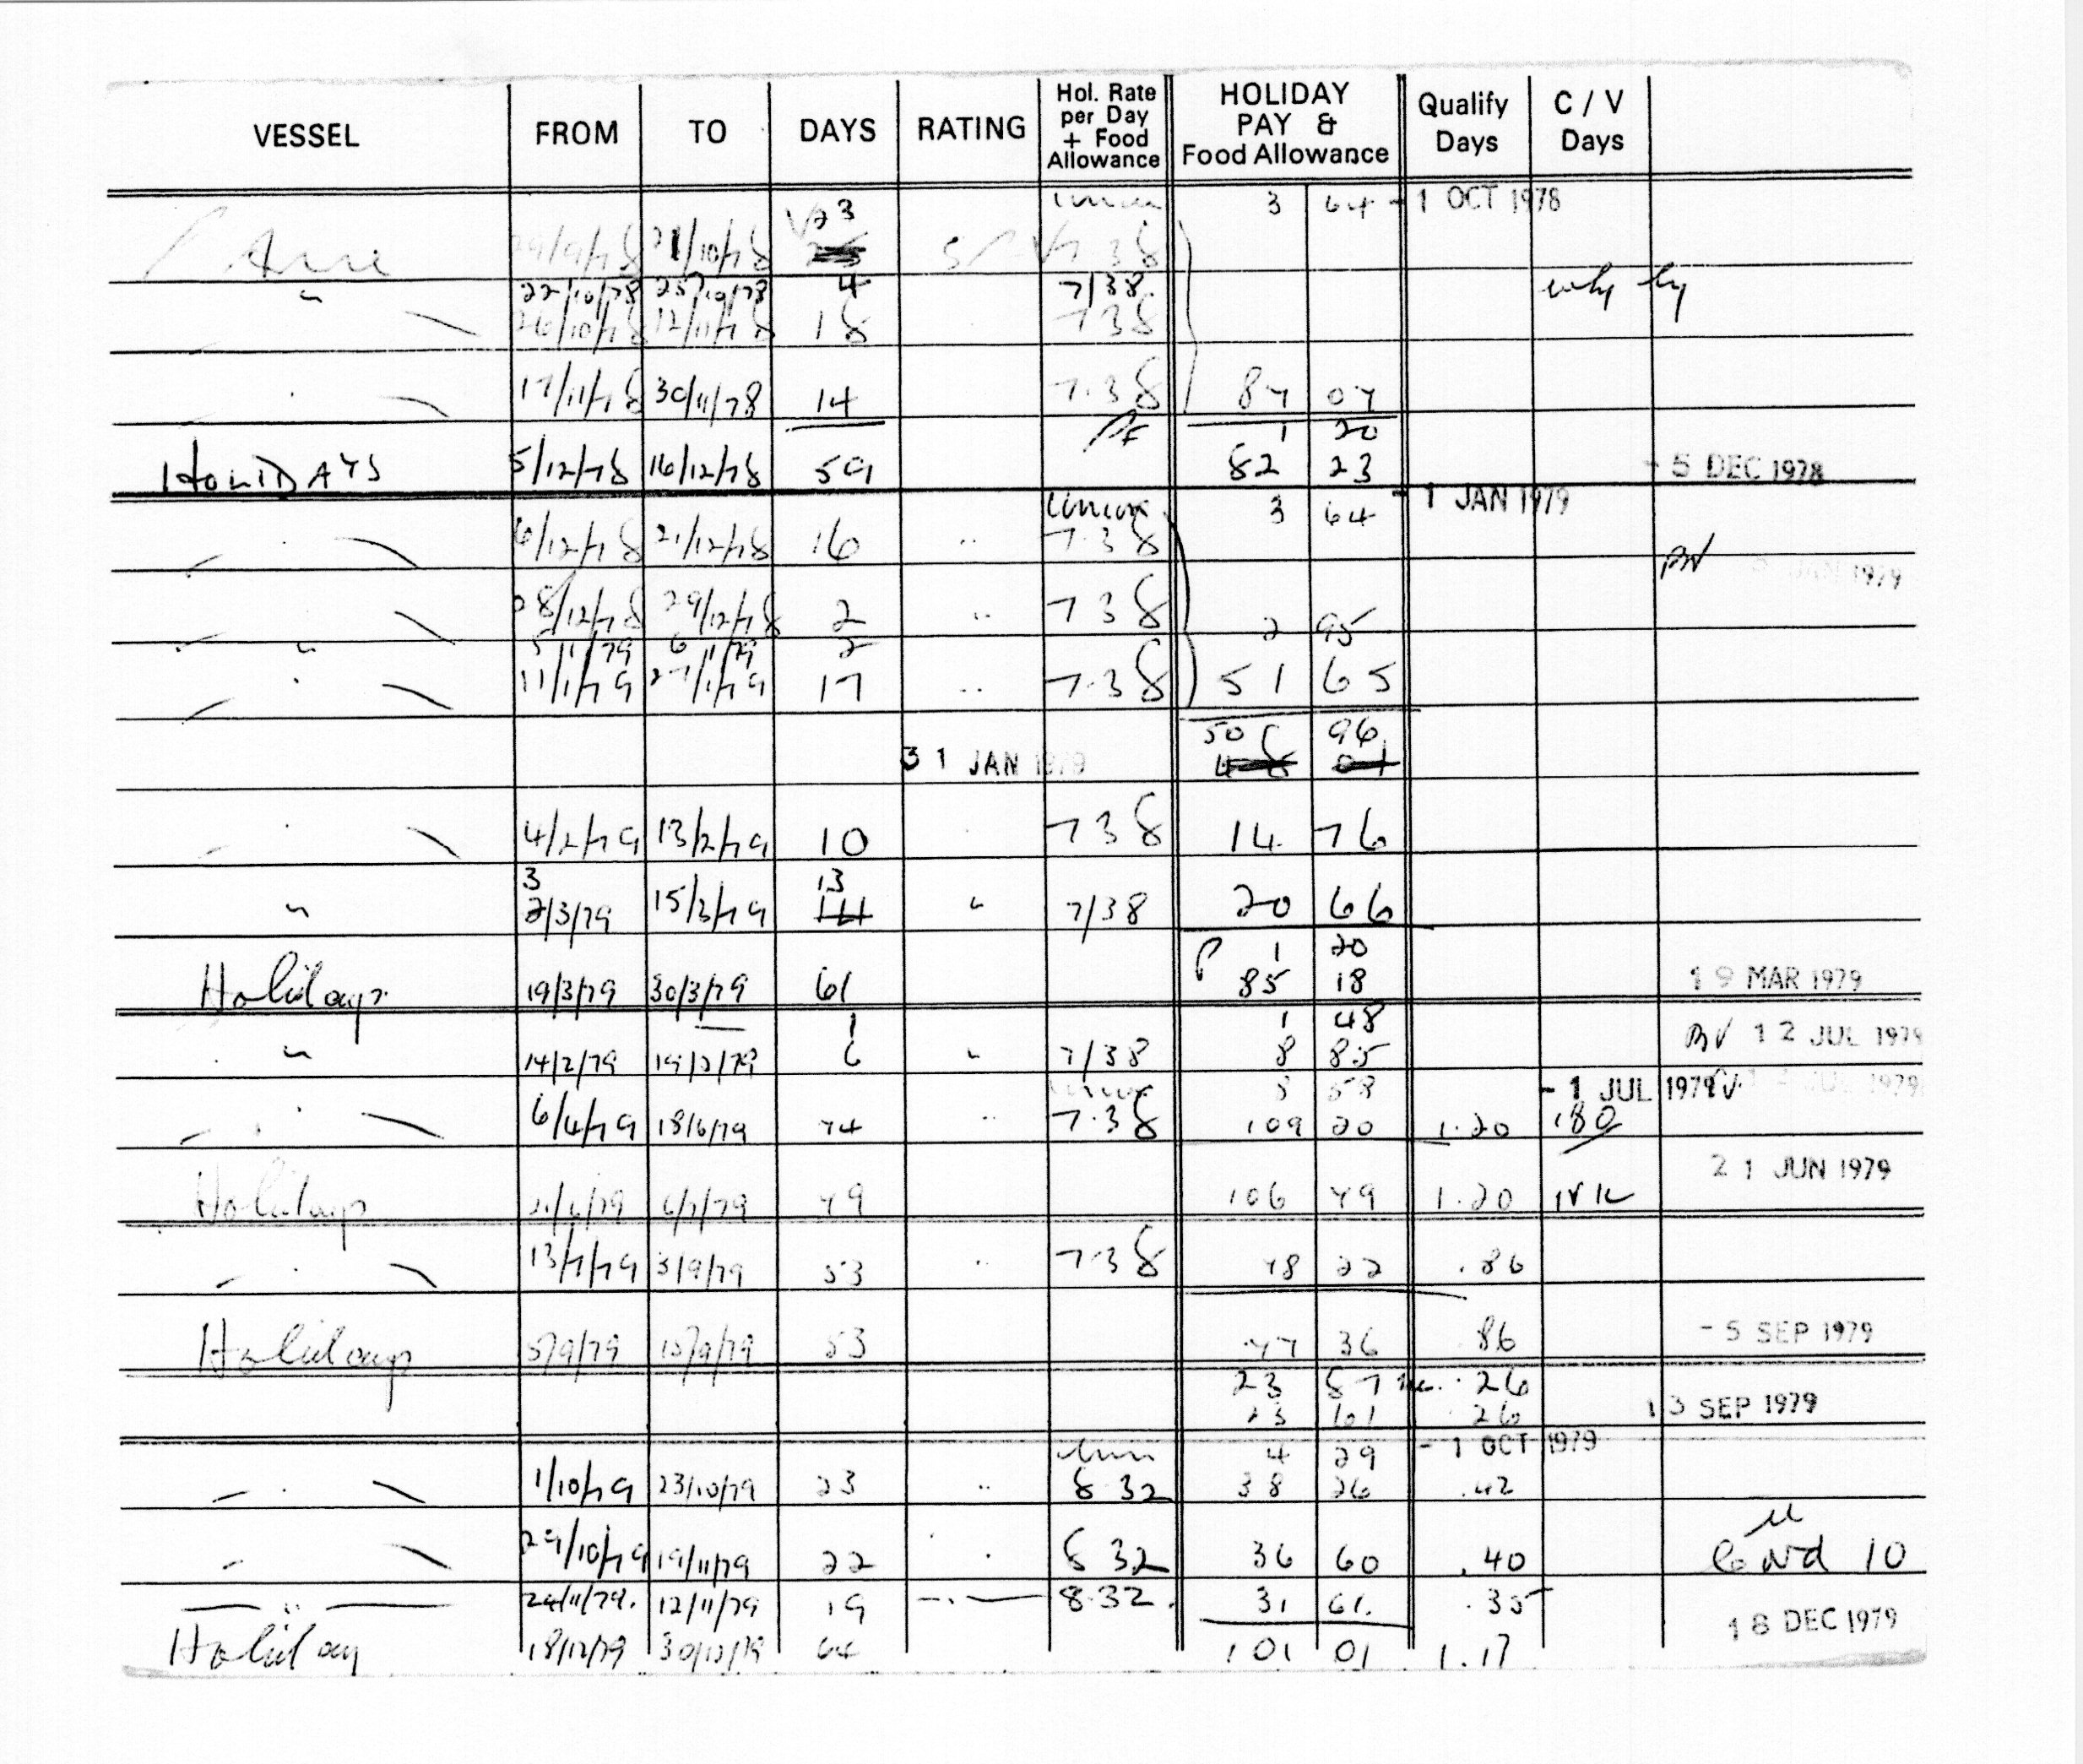 VESSEL FROM TO DAYS RATING Hol. Rate per Day + Food Allowance HOLIDAY PAY & Food Allowance Qualify Days C / V Days
3 64 - 1 OCT 1978
23
29/9/78 21/10/78 7 38
" 22/10/78 25/10/78 4 7/38.
26/10/78 12/11/78 18 7 38
17/11/78 30/11/78 14 7.38 87 07
1 20
HOLIDAYS 5/12/78 16/12/78 59 82 23 - 5 DEC 1978
Union 3 64 - 1 JAN 1979
6/12/78 21/12/78 16 " 7.38
JAN 1979
28/12/78 29/12/78 2 " 7 38 2 95
" 5/1/79 6/1/79 2
" 11/1/79 27/1/79 17 " 7.38 51 65
50 96
31 JAN 1979
4/2/79 13/2/79 10 7 38 14 76
3 13
" 2/3/79 15/3/79 14 " 7/38 20 66
1 20
Holidays 19/3/79 30/3/79 61 85 18 19 MAR 1979
1 1 48
" 14/2/79 19/2/79 6 " 7/38 8 85 12 JUL 1979
Union 3 58 - 1 JUL 1979
" 6/4/79 18/6/79 74 " 7.38 109 20 1.20 180
21 JUN 1979
Holidays 21/6/79 6/7/79 79 106 79 1.20
" 13/7/79 3/9/79 53 " 7.38 78 22 .86
Holidays 5/9/79 15/9/79 53 77 36 .86 - 5 SEP 1979
23 87 .26
23 61 26 13 SEP 1979
4 29 - 1 OCT 1979
" 1/10/79 23/10/79 23 " 8.32 38 26 .42
" 29/10/79 19/11/79 22 " 8 32 36 60 .40 10
" 24/11/79. 12/11/79 19 " 8.32. 31 61. .35
18 DEC 1979
Holiday 18/12/79 30/12/79 64 101 01 1.17